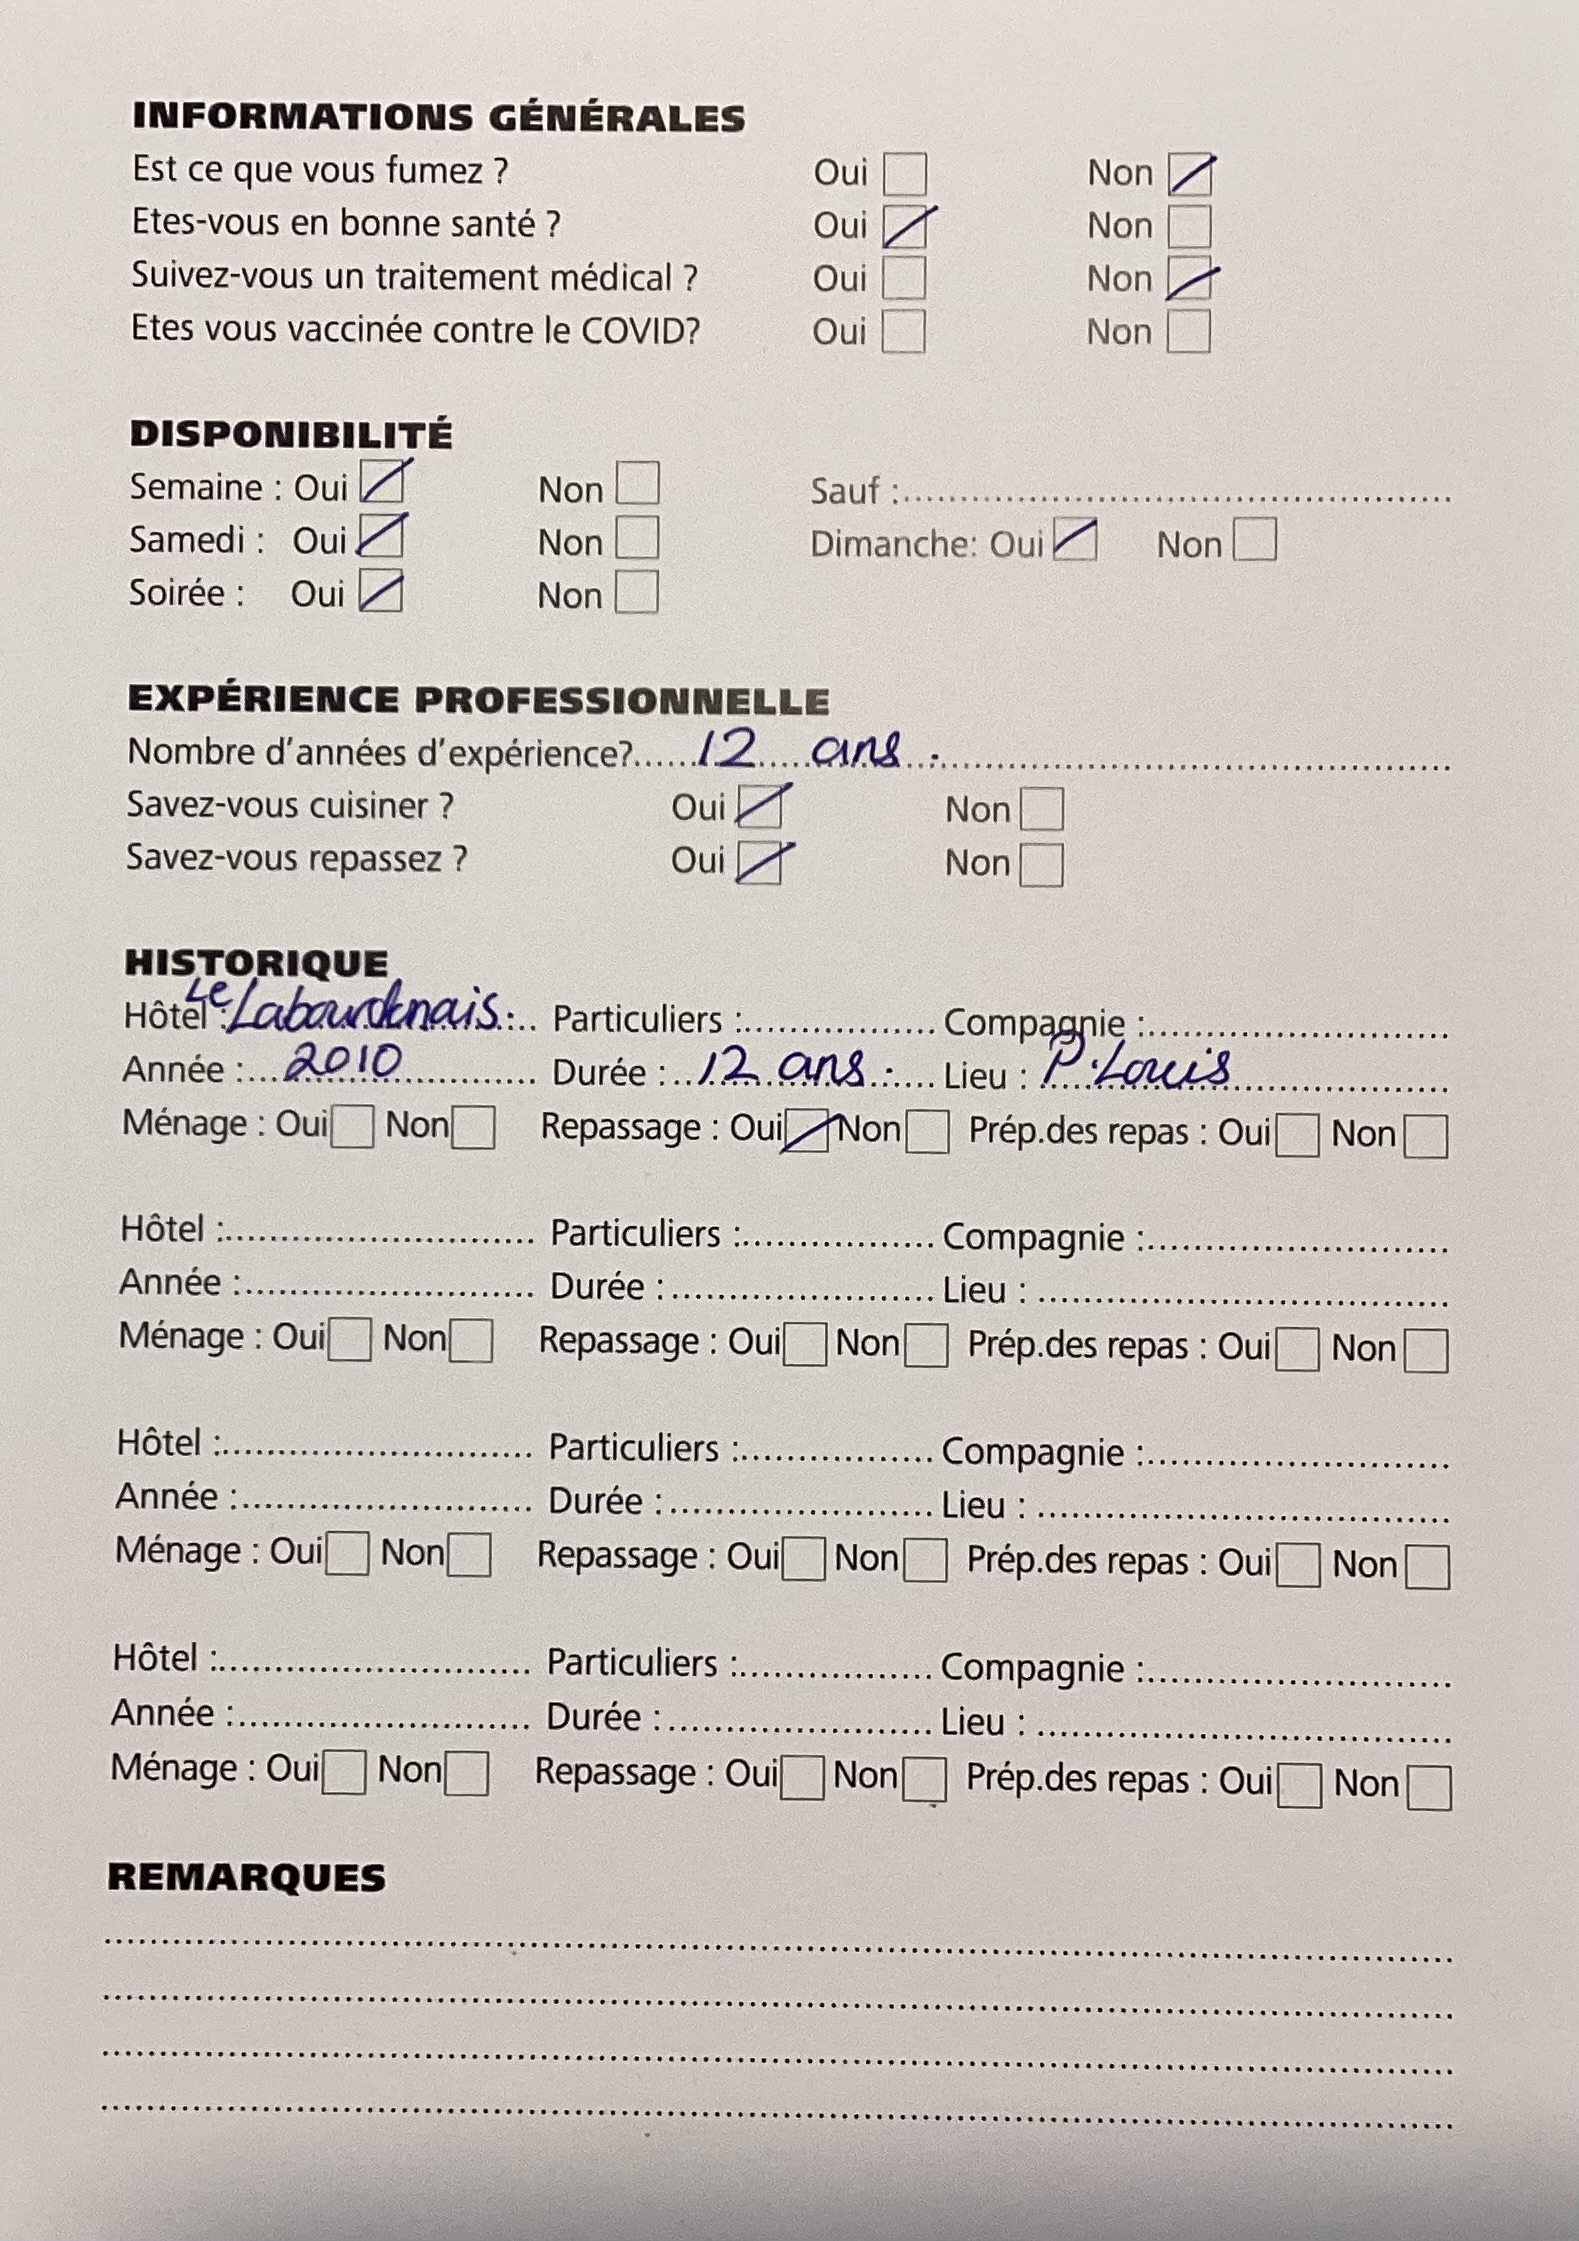 INFORMATIONS GÉNÉRALES
Est ce que vous fumez ? Oui ☐ Non ☑
Etes-vous en bonne santé ? Oui ☑ Non ☐
Suivez-vous un traitement médical ? Oui ☐ Non ☑
Etes vous vaccinée contre le COVID? Oui ☐ Non ☐
DISPONIBILITÉ
Semaine : Oui ☑ Non ☐ Sauf :..............................
Samedi : Oui ☑ Non ☐ Dimanche: Oui ☑ Non ☐
Soirée : Oui ☑ Non ☐
EXPÉRIENCE PROFESSIONNELLE
Nombre d'années d'expérience?......12 ans...............
Savez-vous cuisiner ? Oui ☑ Non ☐
Savez-vous repassez ? Oui ☑ Non ☐
HISTORIQUE
Hôtel : Le Labourdonnais... Particuliers :............... Compagnie :...............
Année :...2010............ Durée :..12 ans...... Lieu : P.Louis...............
Ménage : Oui ☐ Non ☐ Repassage : Oui ☑ Non ☐ Prép.des repas : Oui ☐ Non ☐
Hôtel :............... Particuliers :............... Compagnie :...............
Année :............... Durée :............... Lieu :...............
Ménage : Oui ☐ Non ☐ Repassage : Oui ☐ Non ☐ Prép.des repas : Oui ☐ Non ☐
Hôtel :............... Particuliers :............... Compagnie :...............
Année :............... Durée :............... Lieu :...............
Ménage : Oui ☐ Non ☐ Repassage : Oui ☐ Non ☐ Prép.des repas : Oui ☐ Non ☐
Hôtel :............... Particuliers :............... Compagnie :...............
Année :............... Durée :............... Lieu :...............
Ménage : Oui ☐ Non ☐ Repassage : Oui ☐ Non ☐ Prép.des repas : Oui ☐ Non ☐
REMARQUES